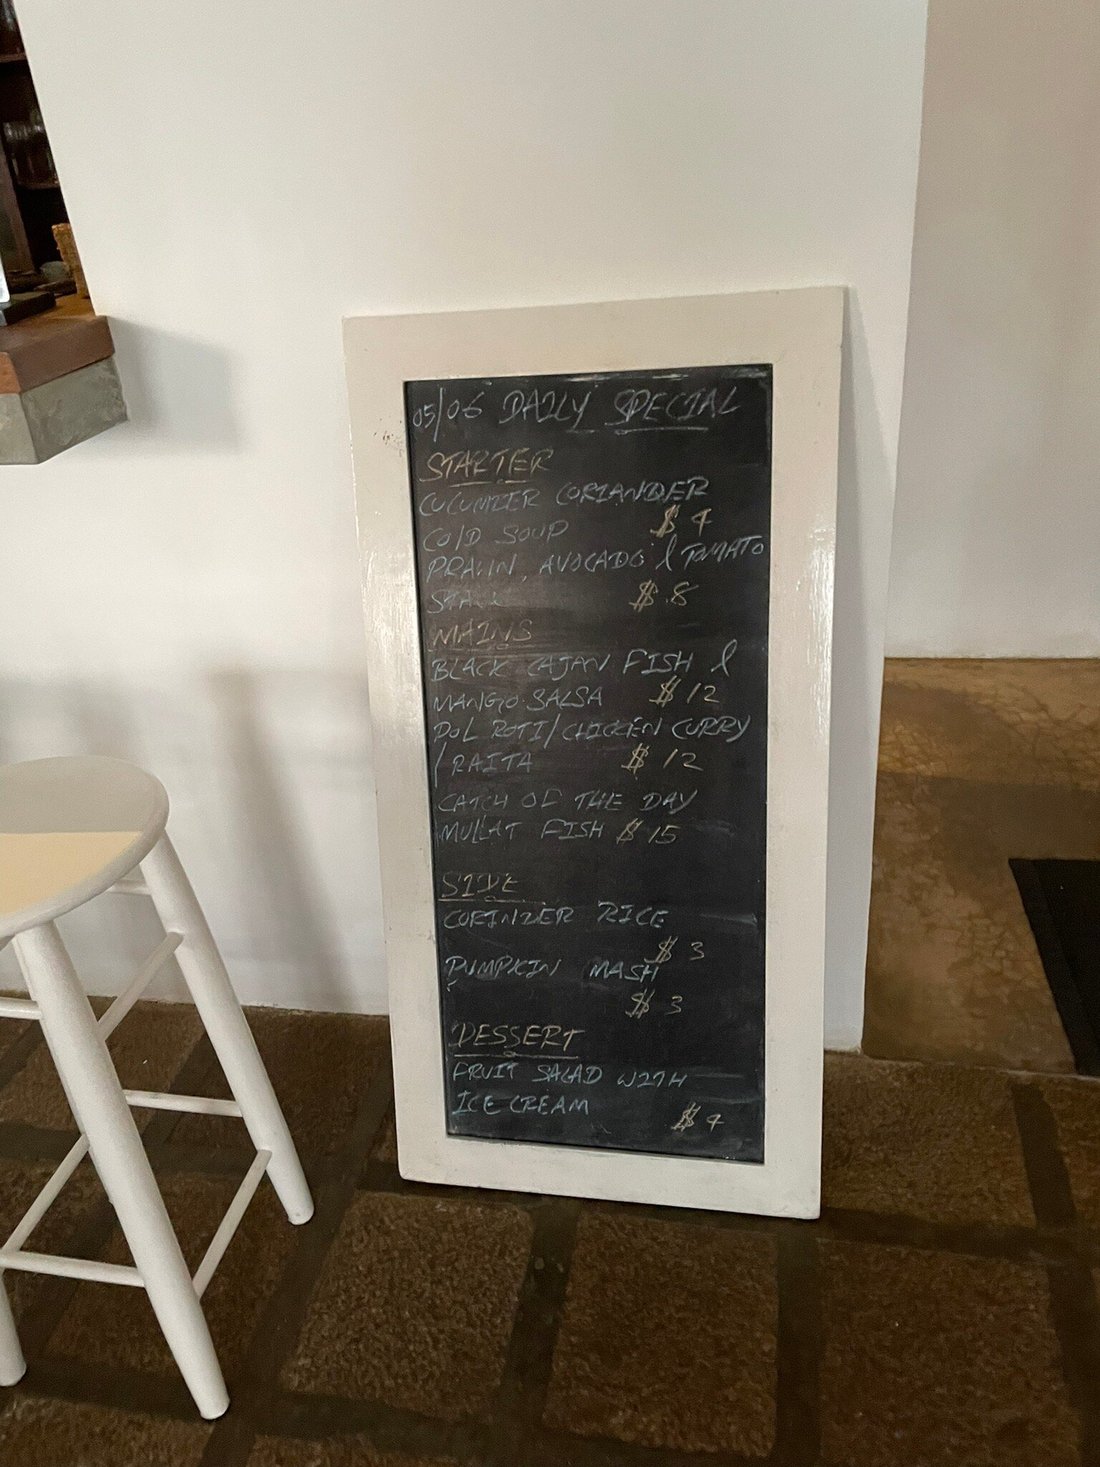 05/06 DAILY SPECIAL
STARTER
CUCUMBER CORIANDER
COLD SOUP $ 4
PRAWN, AVOCADO & TOMATO
$ 8
MAINS
BLACK CAJAN FISH &
MANGO SALSA $ 12
POL ROTI/CHICKEN CURRY
/ RAITA $ 12
CATCH OF THE DAY
MULLAT FISH $ 15
SIDE
CORINDER RICE
$ 3
PUMPKIN MASH
$ 3
DESSERT
FRUIT SALAD WITH
ICE CREAM $ 4